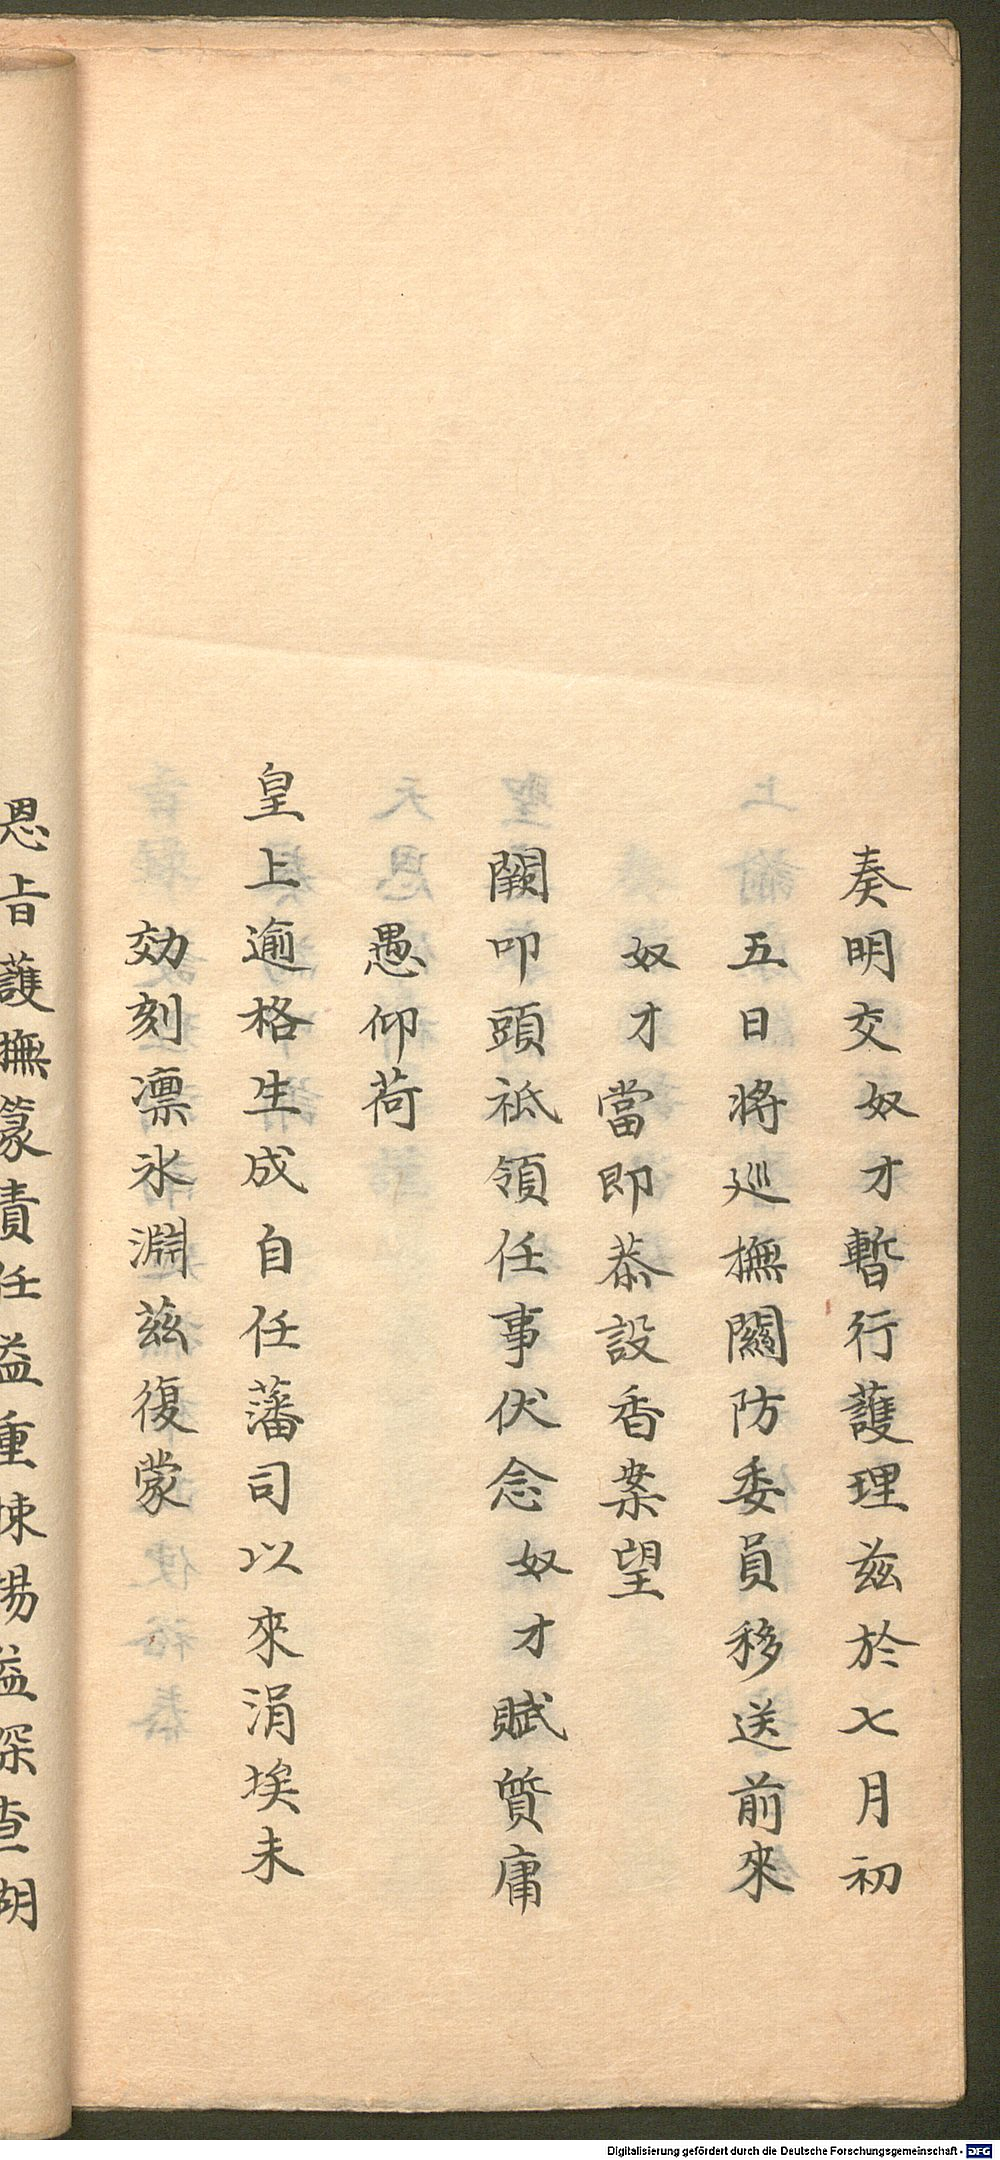 奏明交奴才暫行護理茲於七月初
五日將巡撫關防委員移送前來
奴才當即恭設香案望
闕叩頭祗領任事伏念奴才賦質庸
愚仰荷
皇上逾格生成自任藩司以來涓埃未
効刻凛氷淵茲復蒙
恩旨護撫篆責任益重悚惕益深查湖
Digitalisierung gefördert durch die Deutsche Forschungsgemeinschaft - DFG